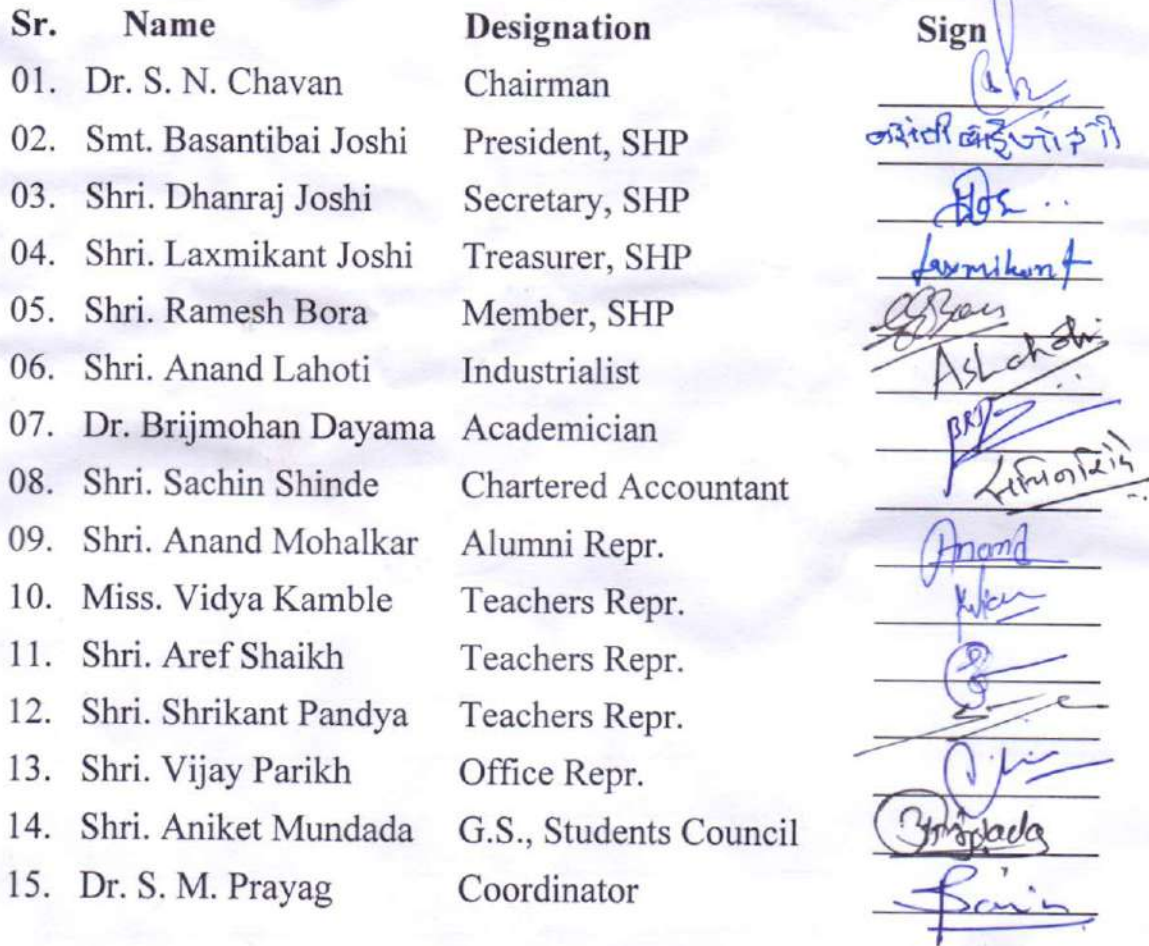 Sr. Name Designation Sign
01. Dr. S. N. Chavan Chairman
02. Smt. Basantibai Joshi President, SHP
03. Shri. Dhanraj Joshi Secretary, SHP
04. Shri. Laxmikant Joshi Treasurer, SHP Laxmikant
05. Shri. Ramesh Bora Member, SHP
06. Shri. Anand Lahoti Industrialist
07. Dr. Brijmohan Dayama Academician BRD
08. Shri. Sachin Shinde Chartered Accountant
09. Shri. Anand Mohalkar Alumni Repr. Anand
10. Miss. Vidya Kamble Teachers Repr.
11. Shri. Aref Shaikh Teachers Repr.
12. Shri. Shrikant Pandya Teachers Repr.
13. Shri. Vijay Parikh Office Repr.
14. Shri. Aniket Mundada G.S., Students Council
15. Dr. S. M. Prayag Coordinator